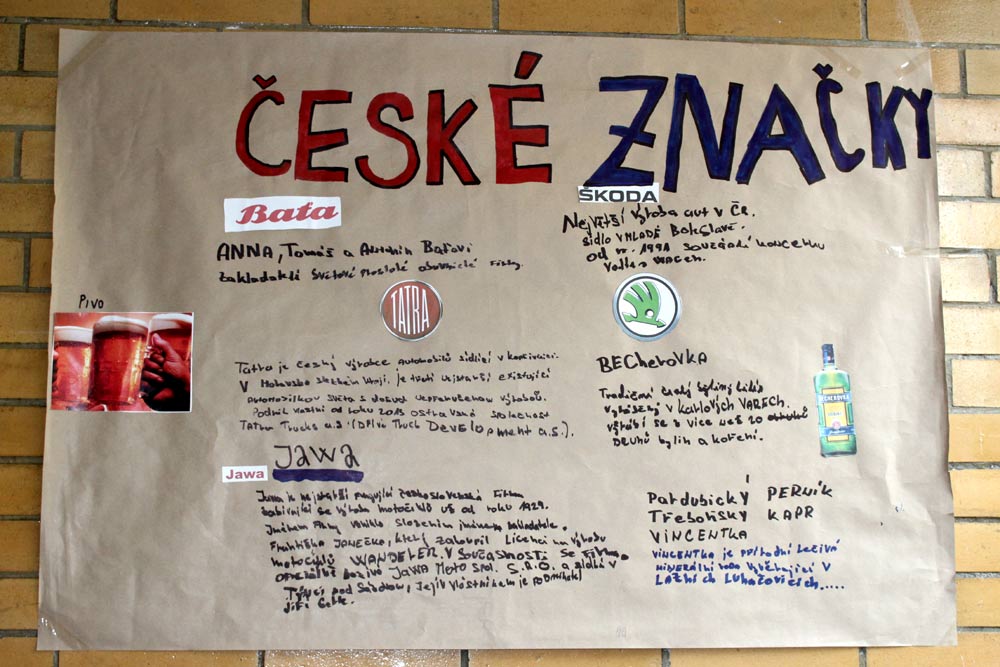 ČESKÉ ZNAČKY
Baťa
ANNA, Tomáš a Antonín Baťovi
zakladatelé světově proslulé obuvnické firmy.
ŠKODA
Největší výroba aut v ČR.
sídlo v MLADÉ Boleslavi.
od r. 1991 součástí koncernu
Pivo
TATRA
Tatra je český výrobce automobilů sídlící v
V Moravsko slezkém kraji, je třetí nejstarší existující
Automobilkou světa s dosud nepřerušenou výrobou.
Podnik vlastní od roku 2013 ostravská společnost
Tatra Trucks a.s. (Dříve Truck Development a.s.).
BECherovKA
Tradiční český bylinný likér
vyráběný v Karlových VARECH.
vyrábí se z více než 20
Druhů bylin a koření.
BECHEROVKA
Jawa
JAWA
Jawa je nejstarší fungující československá firma
zabívající se výrobou motociklů už od roku 1929.
Jménem firmy vzniklo složením jména zakladatele.
Františka JANEČKA, který zakoupil licenci na výrobu
motocyklů WANDERER. V SOUČASNOSTI se firma
oficiálně nazívá JAWA Moto spol. S.R.O. a sídlí v
Týnci pod Sázavou, Jejíž vlastníkem je podnikatel
Jiří
Pardubický PERNÍK
Třeboňský KAPR
VINCENTKA
VINCENTKA je přírodní léčivá
minerální voda vyvěrající v
LÁZNÍCH Luhačovicích.....